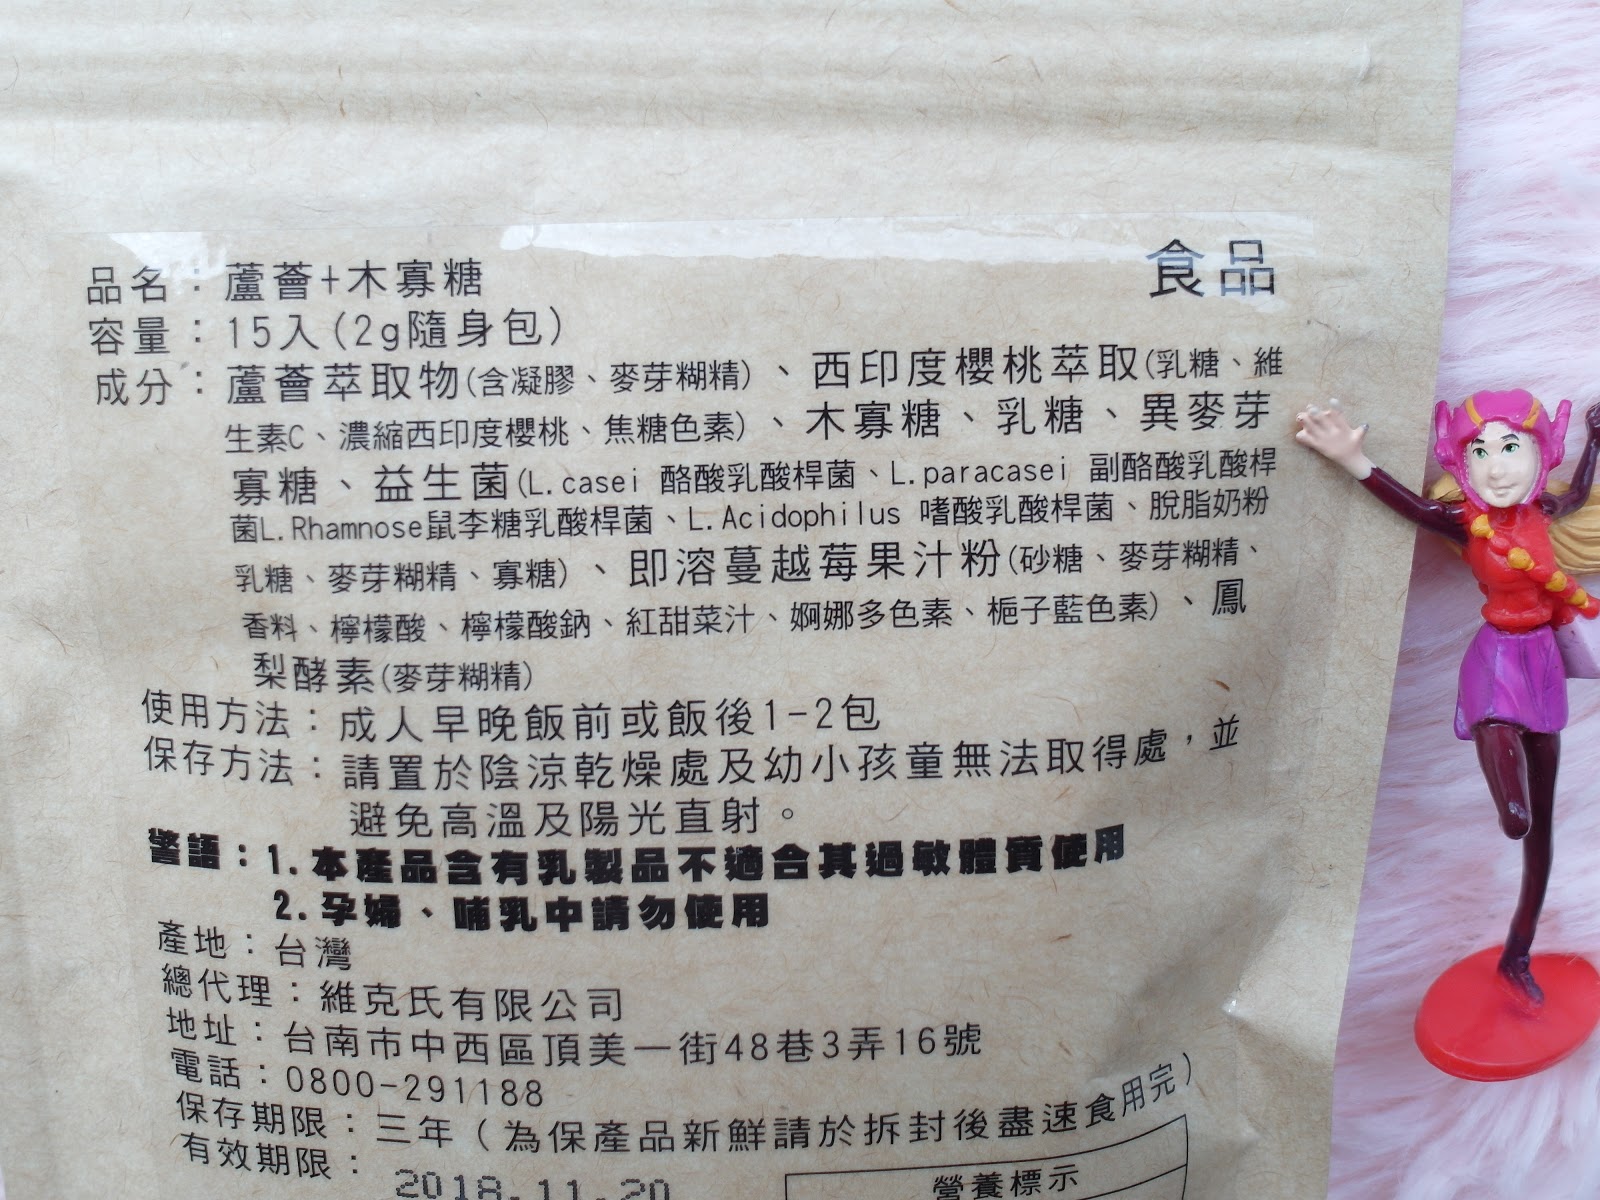 食品
品名：蘆薈+木寡糖
容量：15入(2g隨身包)
成分：蘆薈萃取物(含凝膠、麥芽糊精)、西印度櫻桃萃取(乳糖、維
生素C、濃縮西印度櫻桃、焦糖色素)、木寡糖、乳糖、異麥芽
寡糖、益生菌(L.casei 酪酸乳酸桿菌、L.paracasei 副酪酸乳酸桿
菌L.Rhamnose鼠李糖乳酸桿菌、L.Acidophilus 嗜酸乳酸桿菌、脫脂奶粉
乳糖、麥芽糊精、寡糖)、即溶蔓越莓果汁粉(砂糖、麥芽糊精、
香料、檸檬酸、檸檬酸鈉、紅甜菜汁、婀娜多色素、梔子藍色素)、鳳
梨酵素(麥芽糊精)
使用方法：成人早晚飯前或飯後1-2包
保存方法：請置於陰涼乾燥處及幼小孩童無法取得處，並
避免高溫及陽光直射。
警語：1.本產品含有乳製品不適合其過敏體質使用
2.孕婦、哺乳中請勿使用
產地：台灣
總代理：維克氏有限公司
地址：台南市中西區頂美一街48巷3弄16號
電話：0800-291188
保存期限：三年（為保產品新鮮請於拆封後盡速食用完）
有效期限：2018.11.20
營養標示